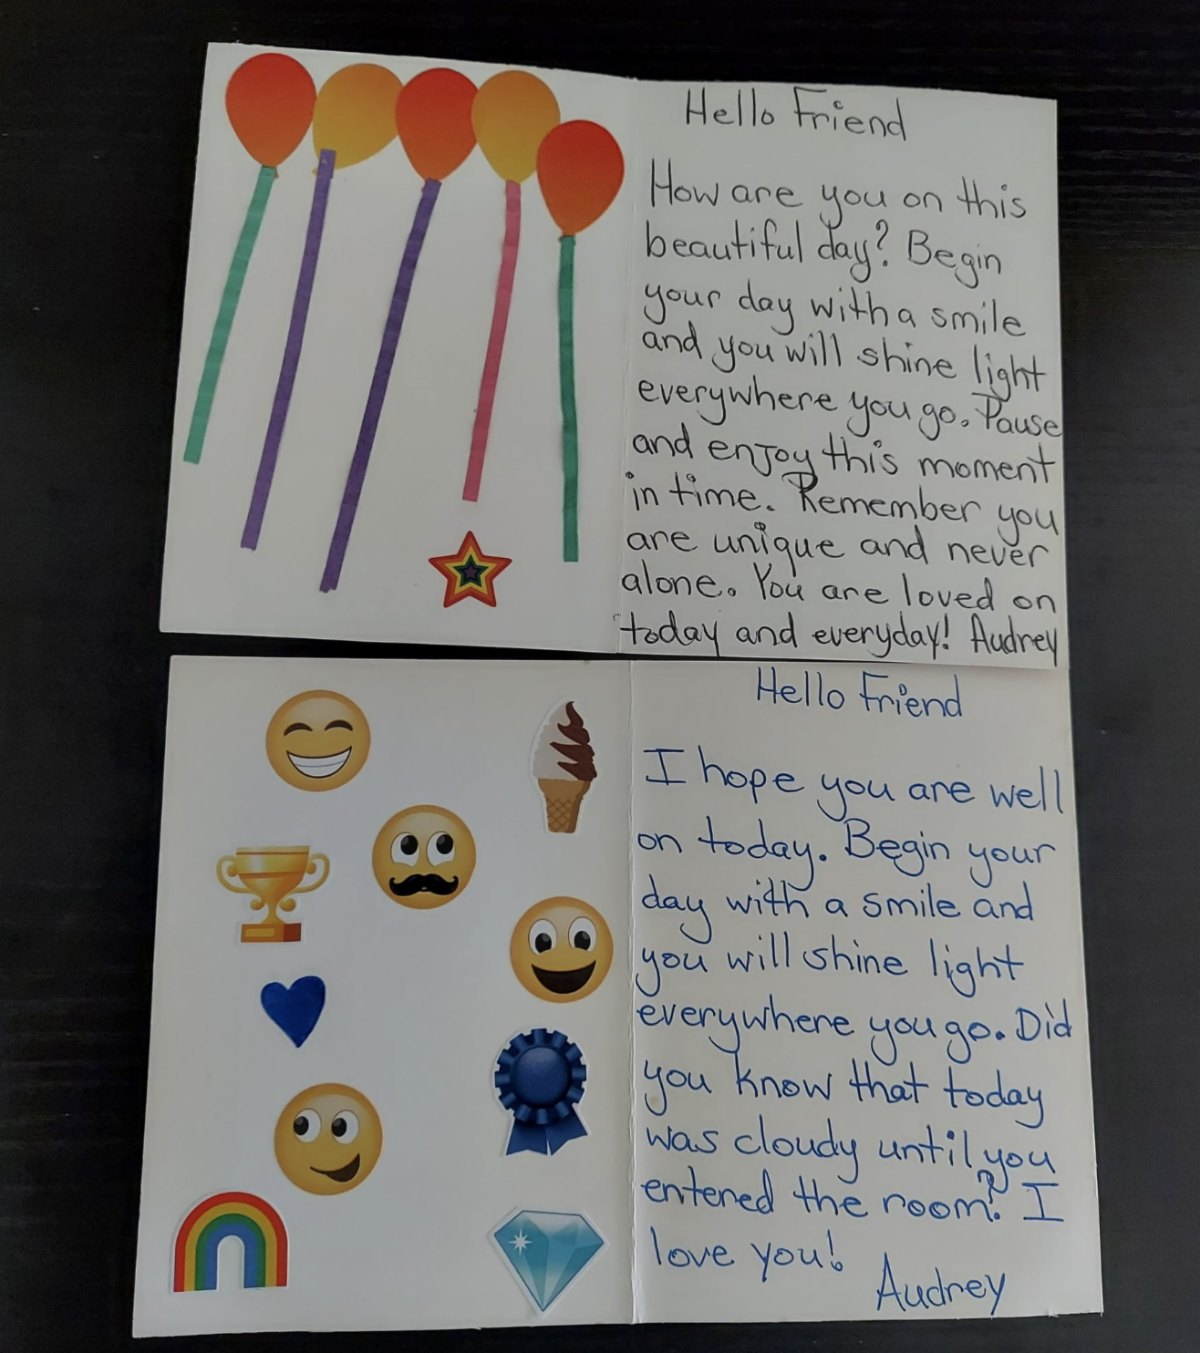 Hello Friend
How are you on this
beautiful day? Begin
your day with a smile
and you will shine light
everywhere you go. Pause
and enjoy this moment
in time. Remember you
are unique and never
alone. You are loved on
today and everyday! Audrey
Hello Friend
I hope you are well
on today. Begin your
day with a smile and
you will shine light
everywhere you go. Did
you know that today
was cloudy until you
entered the room? I
love you!
Audrey